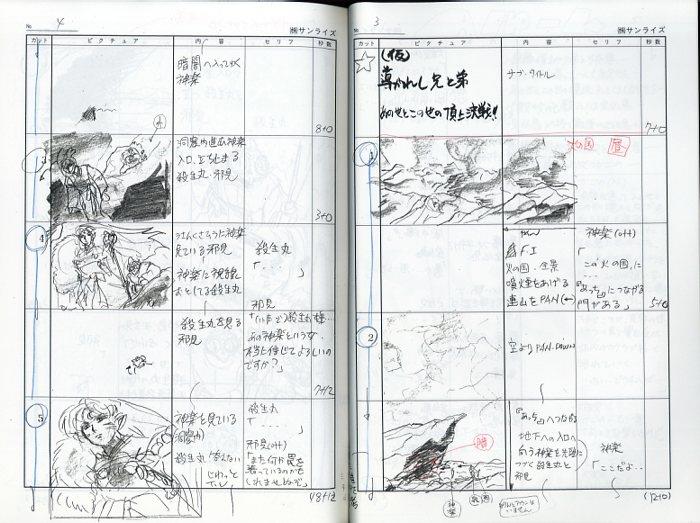 No. 3
㈱サンライズ
カット
ピクチュア
内容
セリフ
秒数
(仮)
導かれし兄と弟
あの世とこの世の頂上決戦!!
サブタイトル
7+0
1
火の国
昼
F.I
火の国・全景
噴煙をあげる
連山をPAN(←)
神楽(off)
「
この火の国に
…
「あっち」につながる
門がある」
5+0
2
空よりPAN.DOWN
「あっち」へつながる
地下への入口へ
向う神楽を先頭に
つづく殺生丸と
邪見
暗
神楽
「ここだよ…
(12+0)
No. 4
㈱サンライズ
カット
ピクチュア
内容
セリフ
秒数
暗闇へ入ってゆく
神楽
8+0
3
洞窟内進む神楽
入口で立ち止まる
殺生丸・邪見
3+0
4
うさんくさそうに神楽
見ている邪見
神楽に視線
おとしてる殺生丸
殺生丸
「・・・・」
殺生丸を見る
邪見
邪見
あの神楽という女
本当に信じてよろしいの
ですか?」
7+12
5
神楽を見ている
殺生丸
「・・・・」
殺生丸答えない
邪見(off)
「また何か罠を